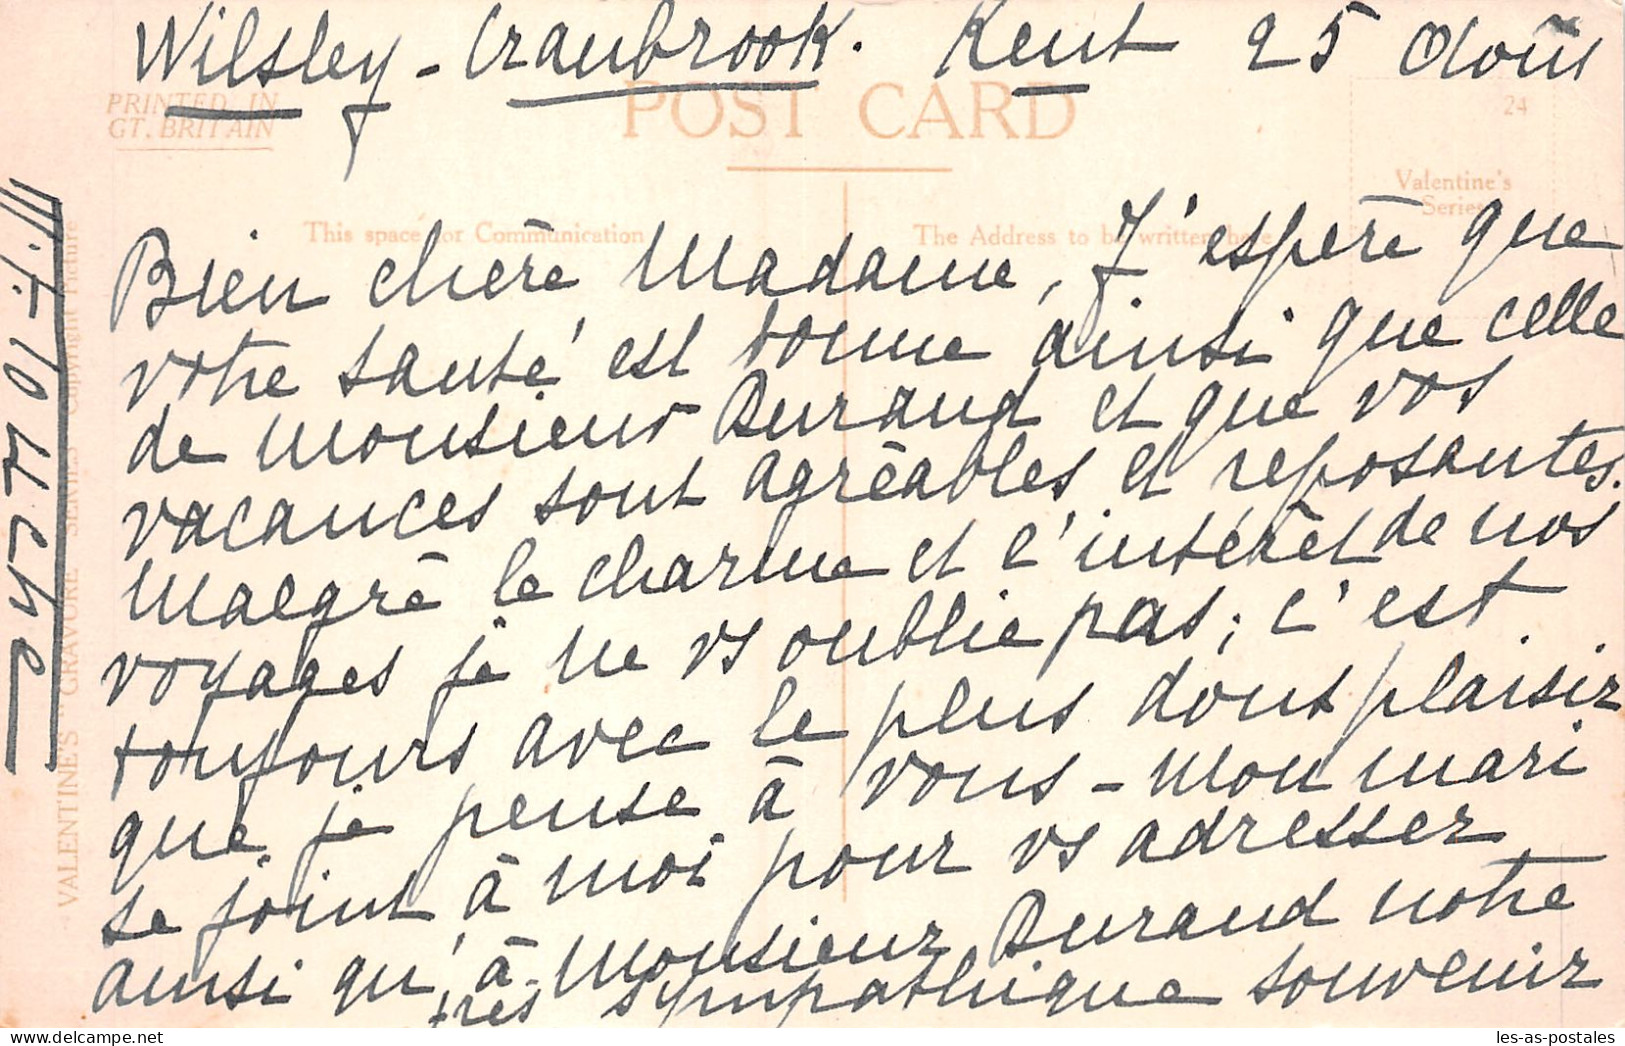 Wilsley - Cranbrook. Kent 25 Août
PRINTED IN
GT. BRITAIN
POST CARD
24
Valentine's
Series
This space for Communication
The Address to be written here
VALENTINE'S "GRAVURE" SERIES Copyright Picture
Bien chère Madame, J'espère que
votre santé est bonne ainsi que celle
de Monsieur Durand et que vos
vacances sont agréables et reposantes.
Malgré le charme et l'intérêt de nos
voyages je ne vs oublie pas; c'est
toujours avec le plus doux plaisir
que je pense à vous - Mon mari
se joint à moi pour vs adresser
ainsi qu'à Monsieur Durand notre
très sympathique souvenir
les-as-postales